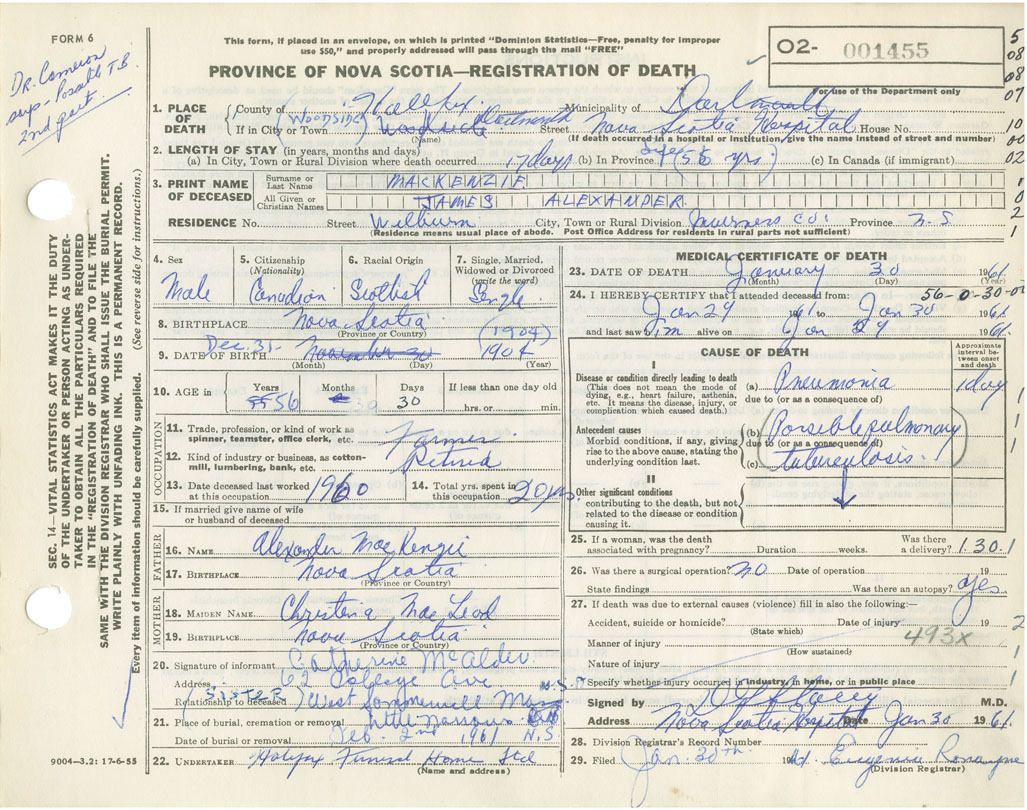 FORM 6
Dr. Cameron
sup - Possible T.B.
2nd quert.
This form, if placed in an envelope, on which is printed "Dominion Statistics—Free, penalty for improper
use $50," and properly addressed will pass through the mail "FREE"
PROVINCE OF NOVA SCOTIA—REGISTRATION OF DEATH
02- 001455
For use of the Department only
5
08
08
07
10
00
02
1. PLACE OF DEATH
County of Halifax Municipality of Dartmouth
If in City or Town (WOODSIDE) Woodside Dartmouth Street Nova Scotia Hospital House No.
(Name) (If death occurred in a hospital or institution, give the name instead of street and number)
2. LENGTH OF STAY (in years, months and days)
(a) In City, Town or Rural Division where death occurred 17 days (b) In Province life (56 yrs) (c) In Canada (if immigrant)
3. PRINT NAME OF DECEASED
Surname or Last Name MACKENZIE
All Given or Christian Names JAMES ALEXANDER
RESIDENCE No. Street Wilburn City, Town or Rural Division Inverness Co. Province N.S
(Residence means usual place of abode. Post Office Address for residents in rural parts not sufficient)
4. Sex Male
5. Citizenship (Nationality) Canadian
6. Racial Origin Scottish
7. Single, Married, Widowed or Divorced (write the word) Single
8. BIRTHPLACE Nova Scotia
(Province or Country)
(1904)
Dec. 31-
9. DATE OF BIRTH November 30 1904
(Month) (Day) (Year)
10. AGE in Years 56 Months Days 30 If less than one day old hrs. or min.
OCCUPATION
11. Trade, profession, or kind of work as spinner, teamster, office clerk, etc. Farmer
12. Kind of industry or business, as cotton-mill, lumbering, bank, etc. Retired
13. Date deceased last worked at this occupation 1960
14. Total yrs. spent in this occupation 20 yrs.
15. If married give name of wife or husband of deceased
FATHER
16. NAME Alexander MacKenzie
17. BIRTHPLACE Nova Scotia
(Province or Country)
MOTHER
18. MAIDEN NAME Christena MacLeod
19. BIRTHPLACE Nova Scotia
(Province or Country)
20. Signature of informant Catherine McAlder
Address 62 College Ave
Relationship to deceased (SISTER) West Sommerville Mass U.S.A
21. Place of burial, cremation or removal Little Narrows
Date of burial or removal Feb. 2nd 1961 N.S.
22. UNDERTAKER Halifax Funeral Home Ltd
(Name and address)
9004-3.2: 17-6-55
SEC. 14—VITAL STATISTICS ACT MAKES IT THE DUTY
OF THE UNDERTAKER OR PERSON ACTING AS UNDER-
TAKER TO OBTAIN ALL THE PARTICULARS REQUIRED
IN THE "REGISTRATION OF DEATH" AND TO FILE THE
SAME WITH THE DIVISION REGISTRAR WHO SHALL ISSUE THE BURIAL PERMIT.
WRITE PLAINLY WITH UNFADING INK. THIS IS A PERMANENT RECORD.
Every item of information should be carefully supplied. (See reverse side for instructions.)
MEDICAL CERTIFICATE OF DEATH
23. DATE OF DEATH January 30 1961
(Month) (Day)
56-0-30-00
24. I HEREBY CERTIFY that I attended deceased from:
Jan 29 1961 to Jan 30 1961
and last saw him alive on Jan 29 1961.
CAUSE OF DEATH
Approximate interval between onset and death
I
Disease or condition directly leading to death
(This does not mean the mode of dying, e.g., heart failure, asthenia, etc. It means the disease, injury, or complication which caused death.)
(a) Pneumonia 1 day
due to (or as a consequence of)
Antecedent causes
Morbid conditions, if any, giving rise to the above cause, stating the underlying condition last.
(b) Possible pulmonary
due to (or as a consequence of)
(c) tuberculosis.
II
Other significant conditions
contributing to the death, but not related to the disease or condition causing it.
25. If a woman, was the death associated with pregnancy? Duration weeks. Was there a delivery? 1.30.1
26. Was there a surgical operation? NO Date of operation 19
State findings Was there an autopsy? yes
27. If death was due to external causes (violence) fill in also the following:—
Accident, suicide or homicide? Date of injury 19
(State which)
493X
Manner of injury
(How sustained)
Nature of injury
Specify whether injury occurred in industry, in home, or in public place
Signed by M.D.
Address Nova Scotia Hospital Date Jan 30 1961.
28. Division Registrar's Record Number
29. Filed Jan. 30th 1961. Eugenie Romayne
(Division Registrar)